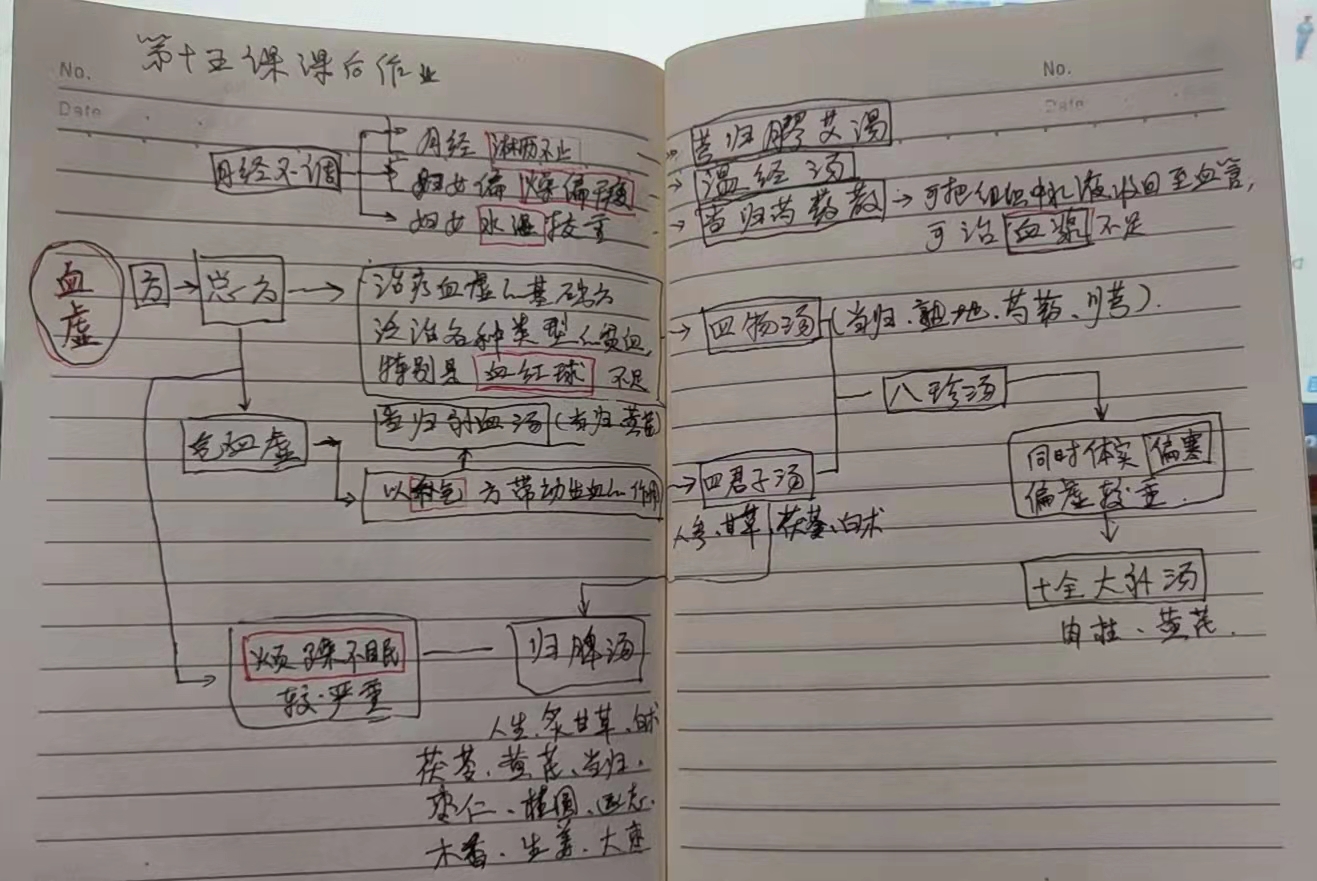 第十五课课后作业
No.
Date
No.
Date
月经不调
月经 淋沥不止
妇女偏燥偏干瘦
妇女水湿较重
芎归胶艾汤
温经汤
当归芍药散
可把组织中水液收回至血管,
可治血浆不足
血虚
方
总方
治疗血虚的基础方
治诸各种类型的贫血,
特别是血红球不足
四物汤(当归、熟地、芍药、川芎).
八珍汤
气血虚
当归补血汤(当归黄芪)
以补气方带动生血的作用
四君子汤
人参、甘草、茯苓、白术
同时体实偏寒
偏虚较重.
十全大补汤
肉桂、黄芪.
烦躁不眠
较严重
归脾汤
人生、炙甘草、白术
茯苓、黄芪、当归、
枣仁、桂圆、远志、
木香、生姜、大枣